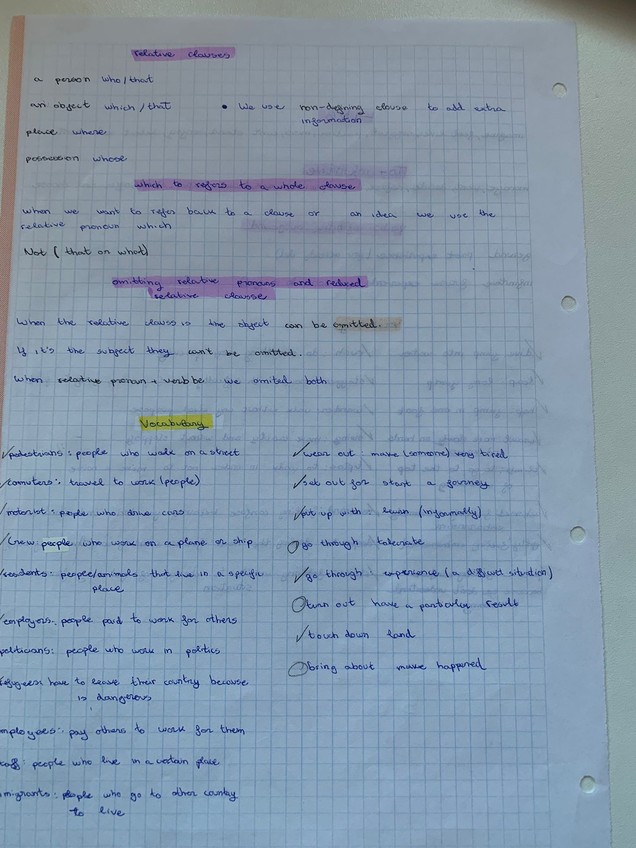 relative clauses
a person who/that
an object which/that
• We use non-defining clause to add extra
information
place where
possession whose
which to refers to a whole clause
When we want to refer back to a clause or an idea we use the
relative pronoun which
Not (that on what)
omitting relative pronouns and reduced
relative clauses
When the relative clauss is the object can be omitted.
If it's the subject they can't be omitted.
When relative pronoun + verb be we omited both
Vocabulary
pedestrians: people who walk on a street
comuters: travel to work (people)
motorist: people who drive cars
crew: people who work on a plane or ship
residents: people/animals that live in a specific
place
employers: people paid to work for others
politicians: people who work in politics
refugees: have to leave their country because
is dangerous
employees: pay others to work for them
staff: people who live in a certain place
migrants: people who go to other country
to live
wear out: make (someone) very tired
set out for start a journey
up with: (informally)
go through tolerate
go through: experience (a difficult situation)
turn out have a particular result
touch down land
bring about make happened